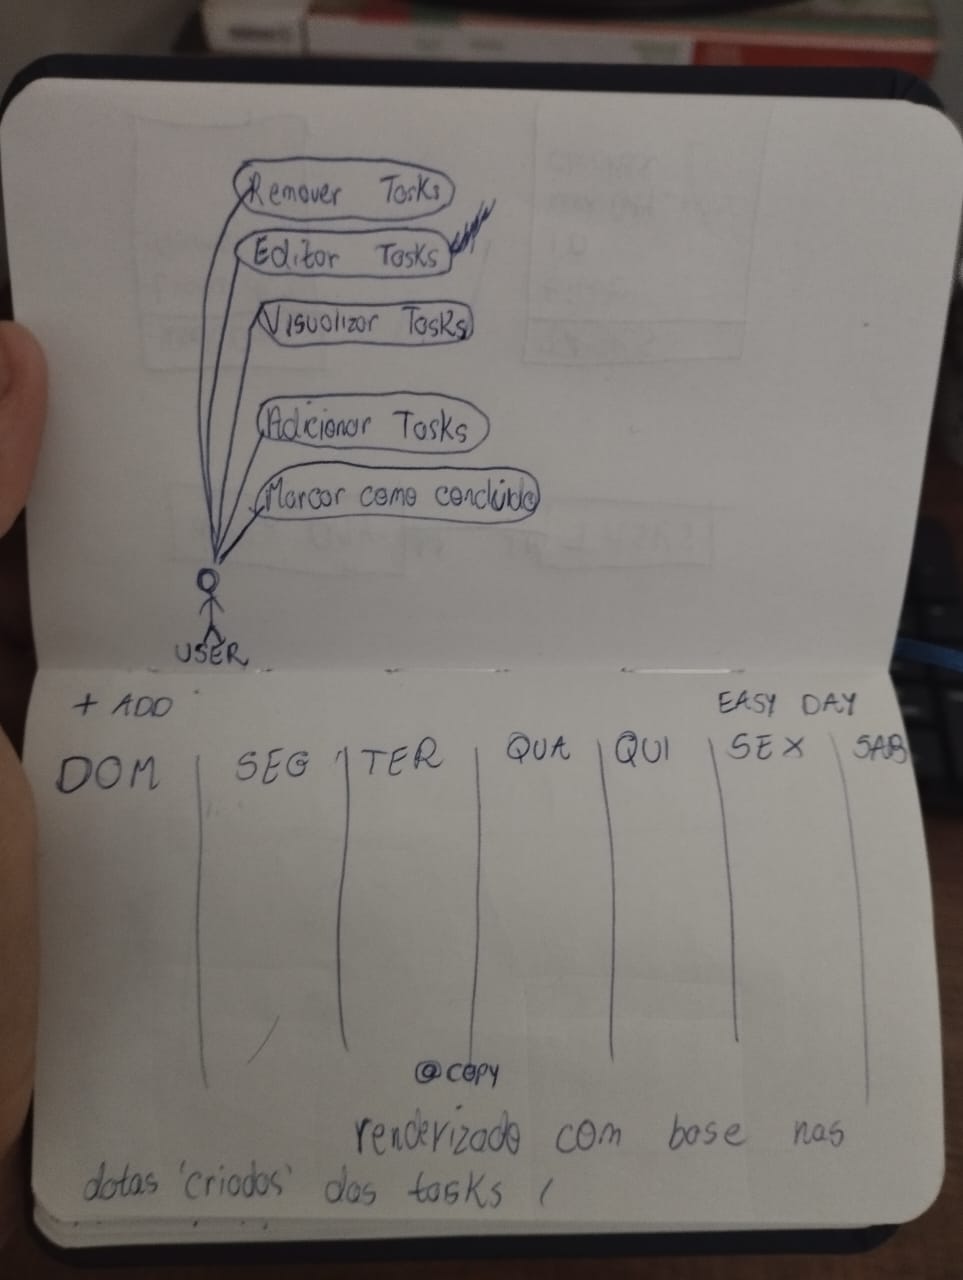 Remover Tasks
Editar Tasks
Visualizar Tasks
Adicionar Tasks
Marcar como concluído
USER
+ ADD
EASY DAY
DOM SEG TER QUA QUI SEX SAB
@COPY
renderizado com base nas
datas 'criados' das tasks (